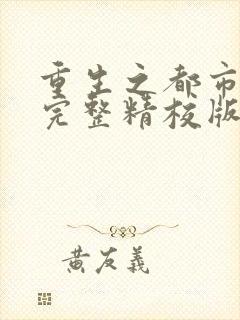 重生之都市
完整精校版
黄友義